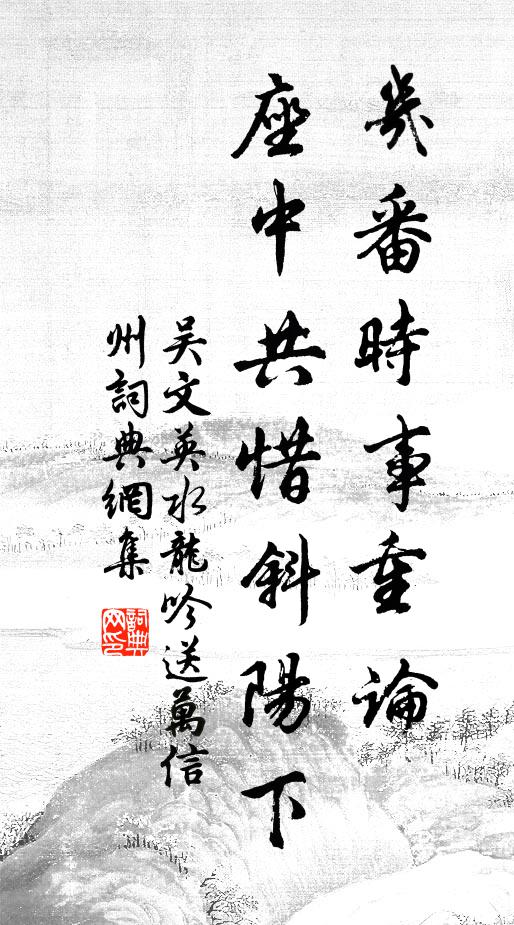 幾番時事重論
座中共惜斜陽下
吳文英水龍吟送萬信
州詞典網集
詞典網印